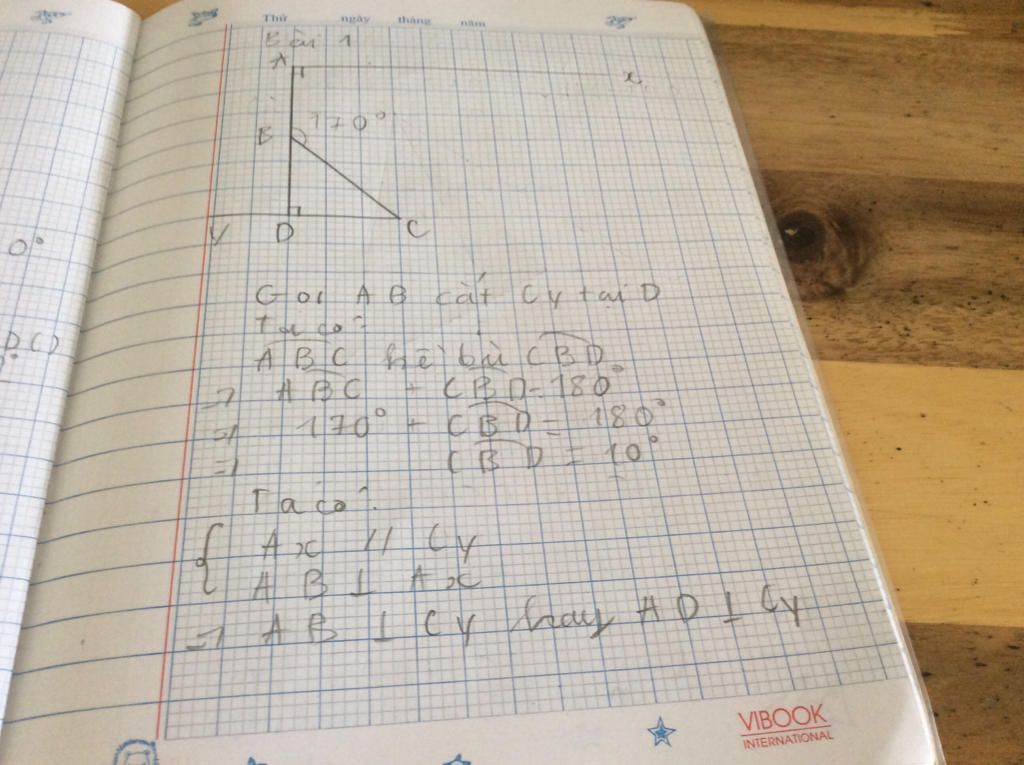 Thứ ngày tháng năm
Bài 1
A x
B 170°
y D C
0°
DC)
Gọi AB cắt Cy tại D
Ta có:
ABC kề bù CBD
=> ABC + CBD = 180°
=> 170° + CBD = 180°
=> CBD = 10°
Ta có:
{ Ax // Cy
AB ⊥ Ax
=> AB ⊥ Cy hay AD ⊥ Cy
VIBOOK
INTERNATIONAL